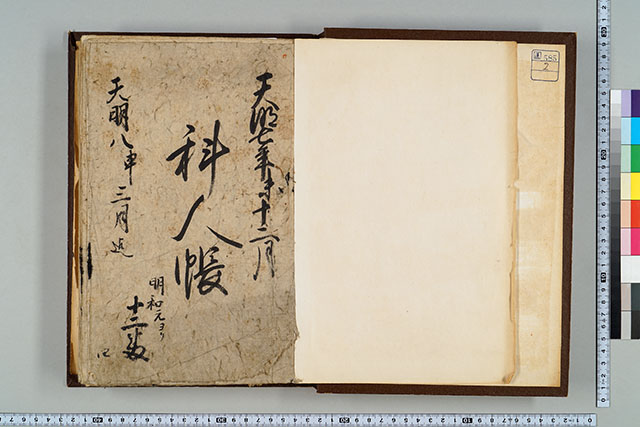 天明七年未十二月
科人帳
天明八申三月迄
明和元ヨリ
十二
585
2